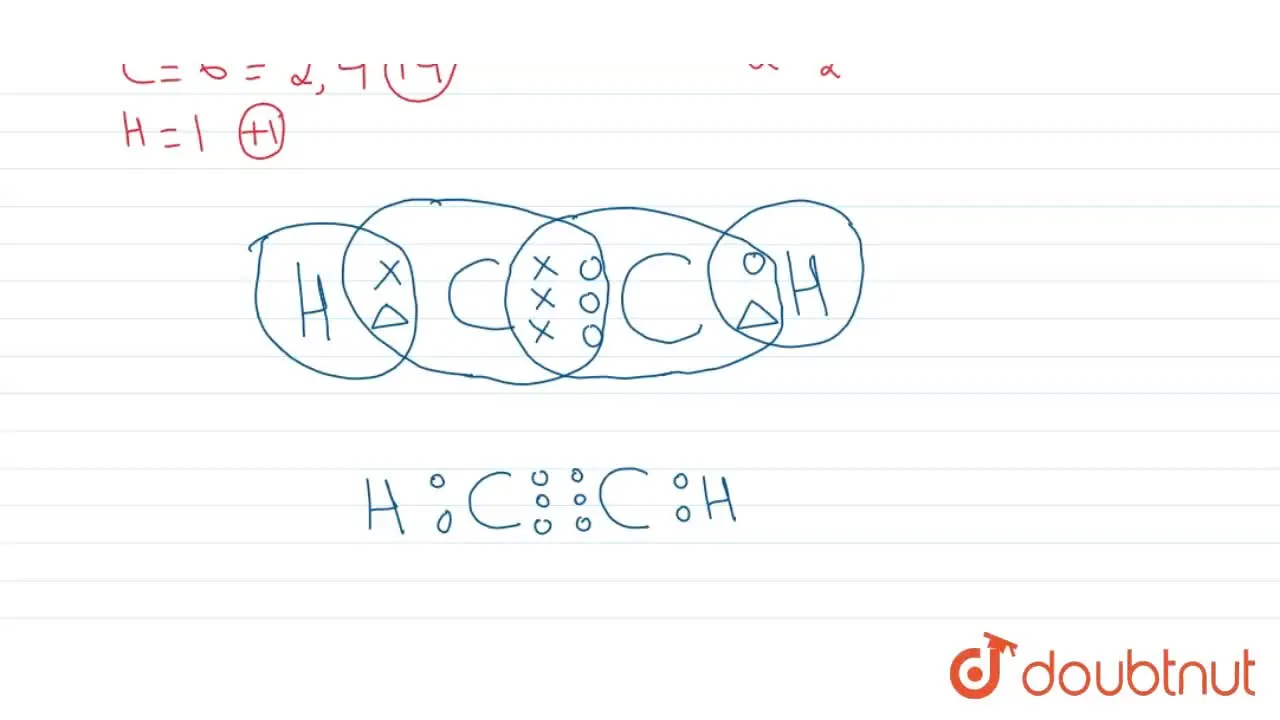 C = 6 = 2, 4
H = 1 +1
H x △ C x x x o o o C o △ H
H : C ⋮ ⋮ C : H
doubtnut